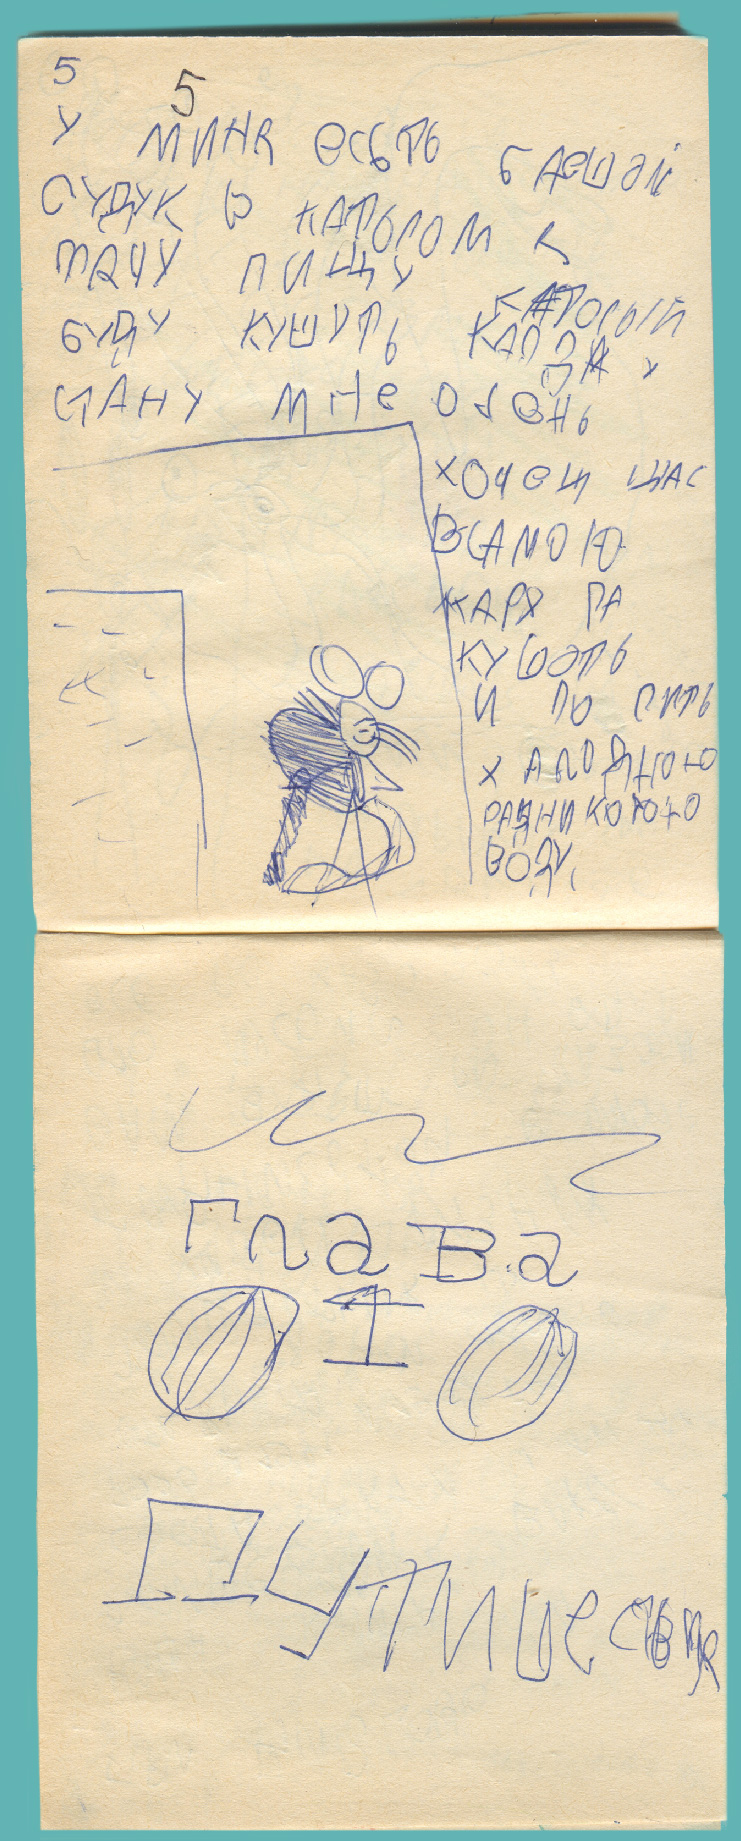 5 5
У МИНЯ ЕСЬТЬ БАЕШОЙ
СУДУК В КАТОРОМ Я
ТАЧУ ПИЩУ
КАТОРЫЙ
БУДУ КУШУТЬ КАГДА У
СТАНУ МНЕ ОЧЕНЬ
ХОЧЕЩ ЩАС
ВСАМОЮ
ЖАРУ ПА
КУШАТЬ
И ПО ПИТЬ
ХАЛОДНОЮ
РАДНИКОЮЮ
ВОДУ.
Глава
1
ПУТИШЕСТВИЯ